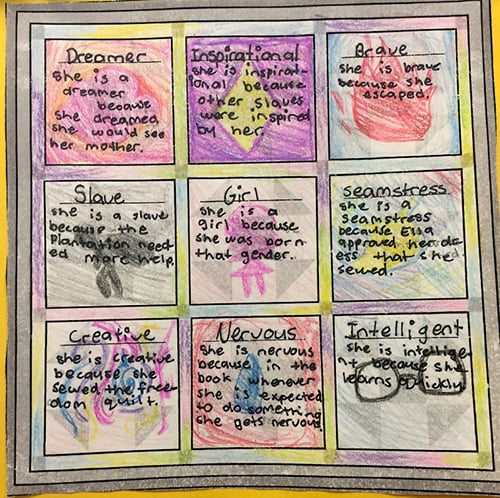 Dreamer
she is a
dreamer
because
she dreamed
she would see
her mother.
Inspirational
she is inspirat-
ional because
other slaves
were inspired
by her.
Brave
she is brave
because she
escaped.
Slave
she is a slave
because the
Plantation need
ed more help.
Girl
she is a
girl because
she was born
that gender.
seamstress.
she is a
seamstress
because
approved her
ess that she
sewed.
Creative
she is creative
because she
sewed the free-
dom quilt.
Nervous
she is nervous
because in the
book whenever
she is expected
to do something
she gets nervous.
Intelligent
she is intellige-
nt because she
learns quickly